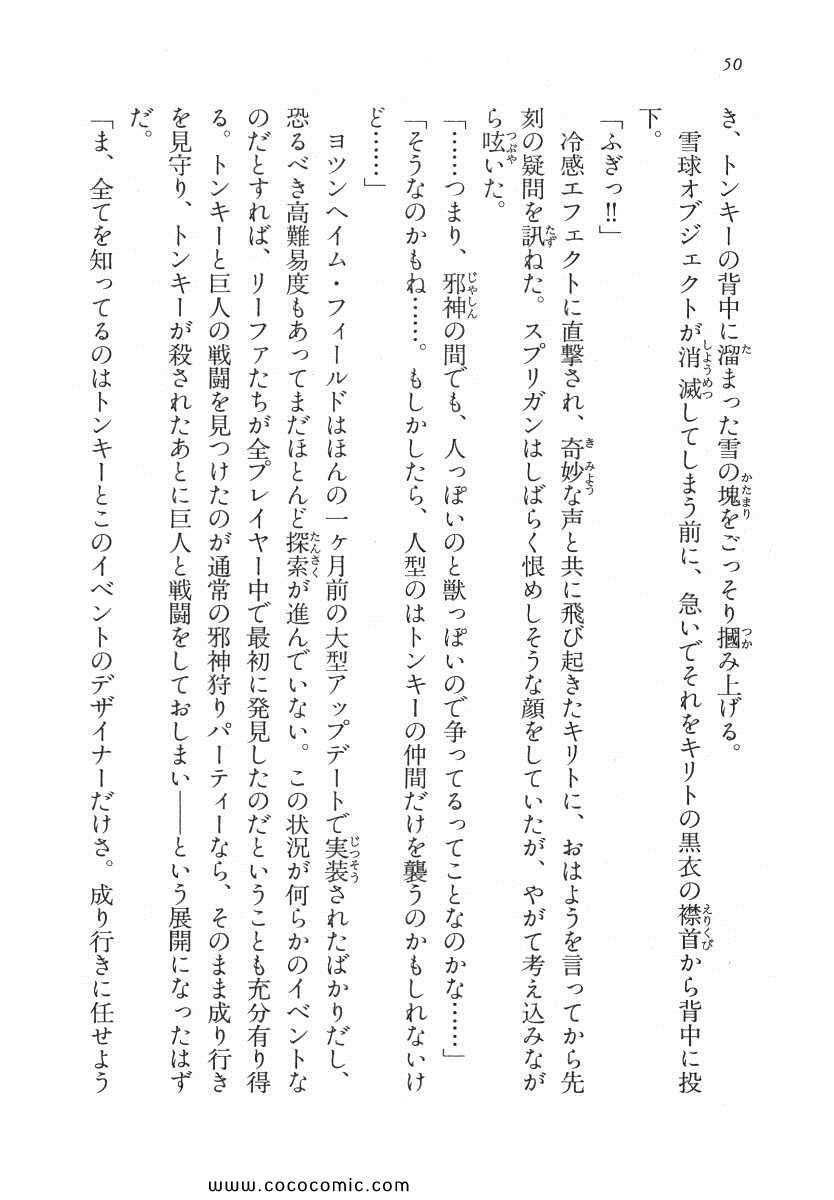 50
き、トンキーの背中に溜まった雪の塊をごっそり摑み上げる。
雪球オブジェクトが消滅してしまう前に、急いでそれをキリトの黒衣の襟首から背中に投
下。
「ふぎっ!!」
冷感エフェクトに直撃され、奇妙な声と共に飛び起きたキリトに、おはようを言ってから先
刻の疑問を訊ねた。スプリガンはしばらく恨めしそうな顔をしていたが、やがて考え込みなが
ら呟いた。
「……つまり、邪神の間でも、人っぽいのと獣っぽいので争ってるってことなのかな……」
「そうなのかもね……。もしかしたら、人型のはトンキーの仲間だけを襲うのかもしれないけ
ど……」
ヨツンヘイム・フィールドはほんの一ヶ月前の大型アップデートで実装されたばかりだし、
恐るべき高難易度もあってまだほとんど探索が進んでいない。この状況が何らかのイベントな
のだとすれば、リーファたちが全プレイヤー中で最初に発見したのだということも充分有り得
る。トンキーと巨人の戦闘を見つけたのが通常の邪神狩りパーティーなら、そのまま成り行き
を見守り、トンキーが殺されたあとに巨人と戦闘をしておしまい――という展開になったはず
だ。
「ま、全てを知ってるのはトンキーとこのイベントのデザイナーだけさ。成り行きに任せよう
www.cococomic.com